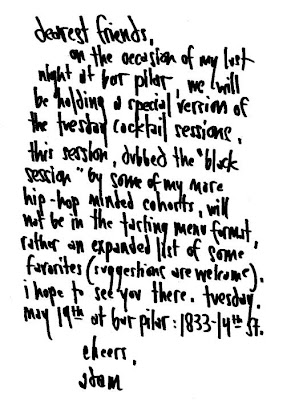 dearest friends,
on the occasion of my last
night at bar pilar, we will
be holding a special version of
the tuesday cocktail sessions.
this session, dubbed the "black
session" by some of my more
hip-hop minded cohorts, will
not be in the tasting menu format,
rather an expanded list of some
favorites (suggestions are welcome).
i hope to see you there. tuesday.
may 19th at bar pilar: 1833-14th st.
cheers.
adam